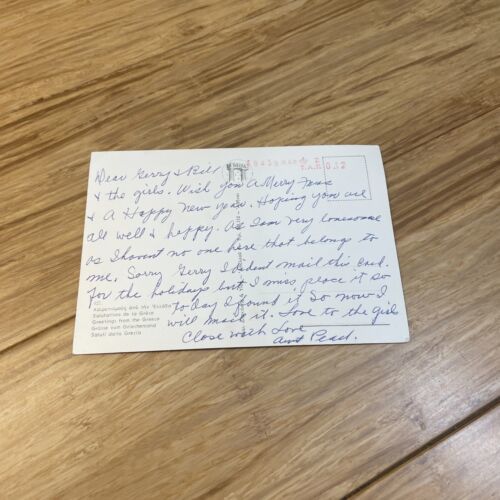 Dear Gerry & Bill
& the girls. Wish you A Merry Xmas
& A Happy New Year. Hoping you are
all well & happy. As I am very lonesome
as I havent no one here that belong to
me, Sorry Gerry I dident mail this Card.
for the holidays but I miss place it so
to day I found it So now I
will mail it. Love to the girls
Close with Love
aunt
Χαιρετισμούς από την Ελλάδα
Salutations de la Grèce
Greetings from the Greece
Grüsse vom Griechenland
Saluti dalla Grecia